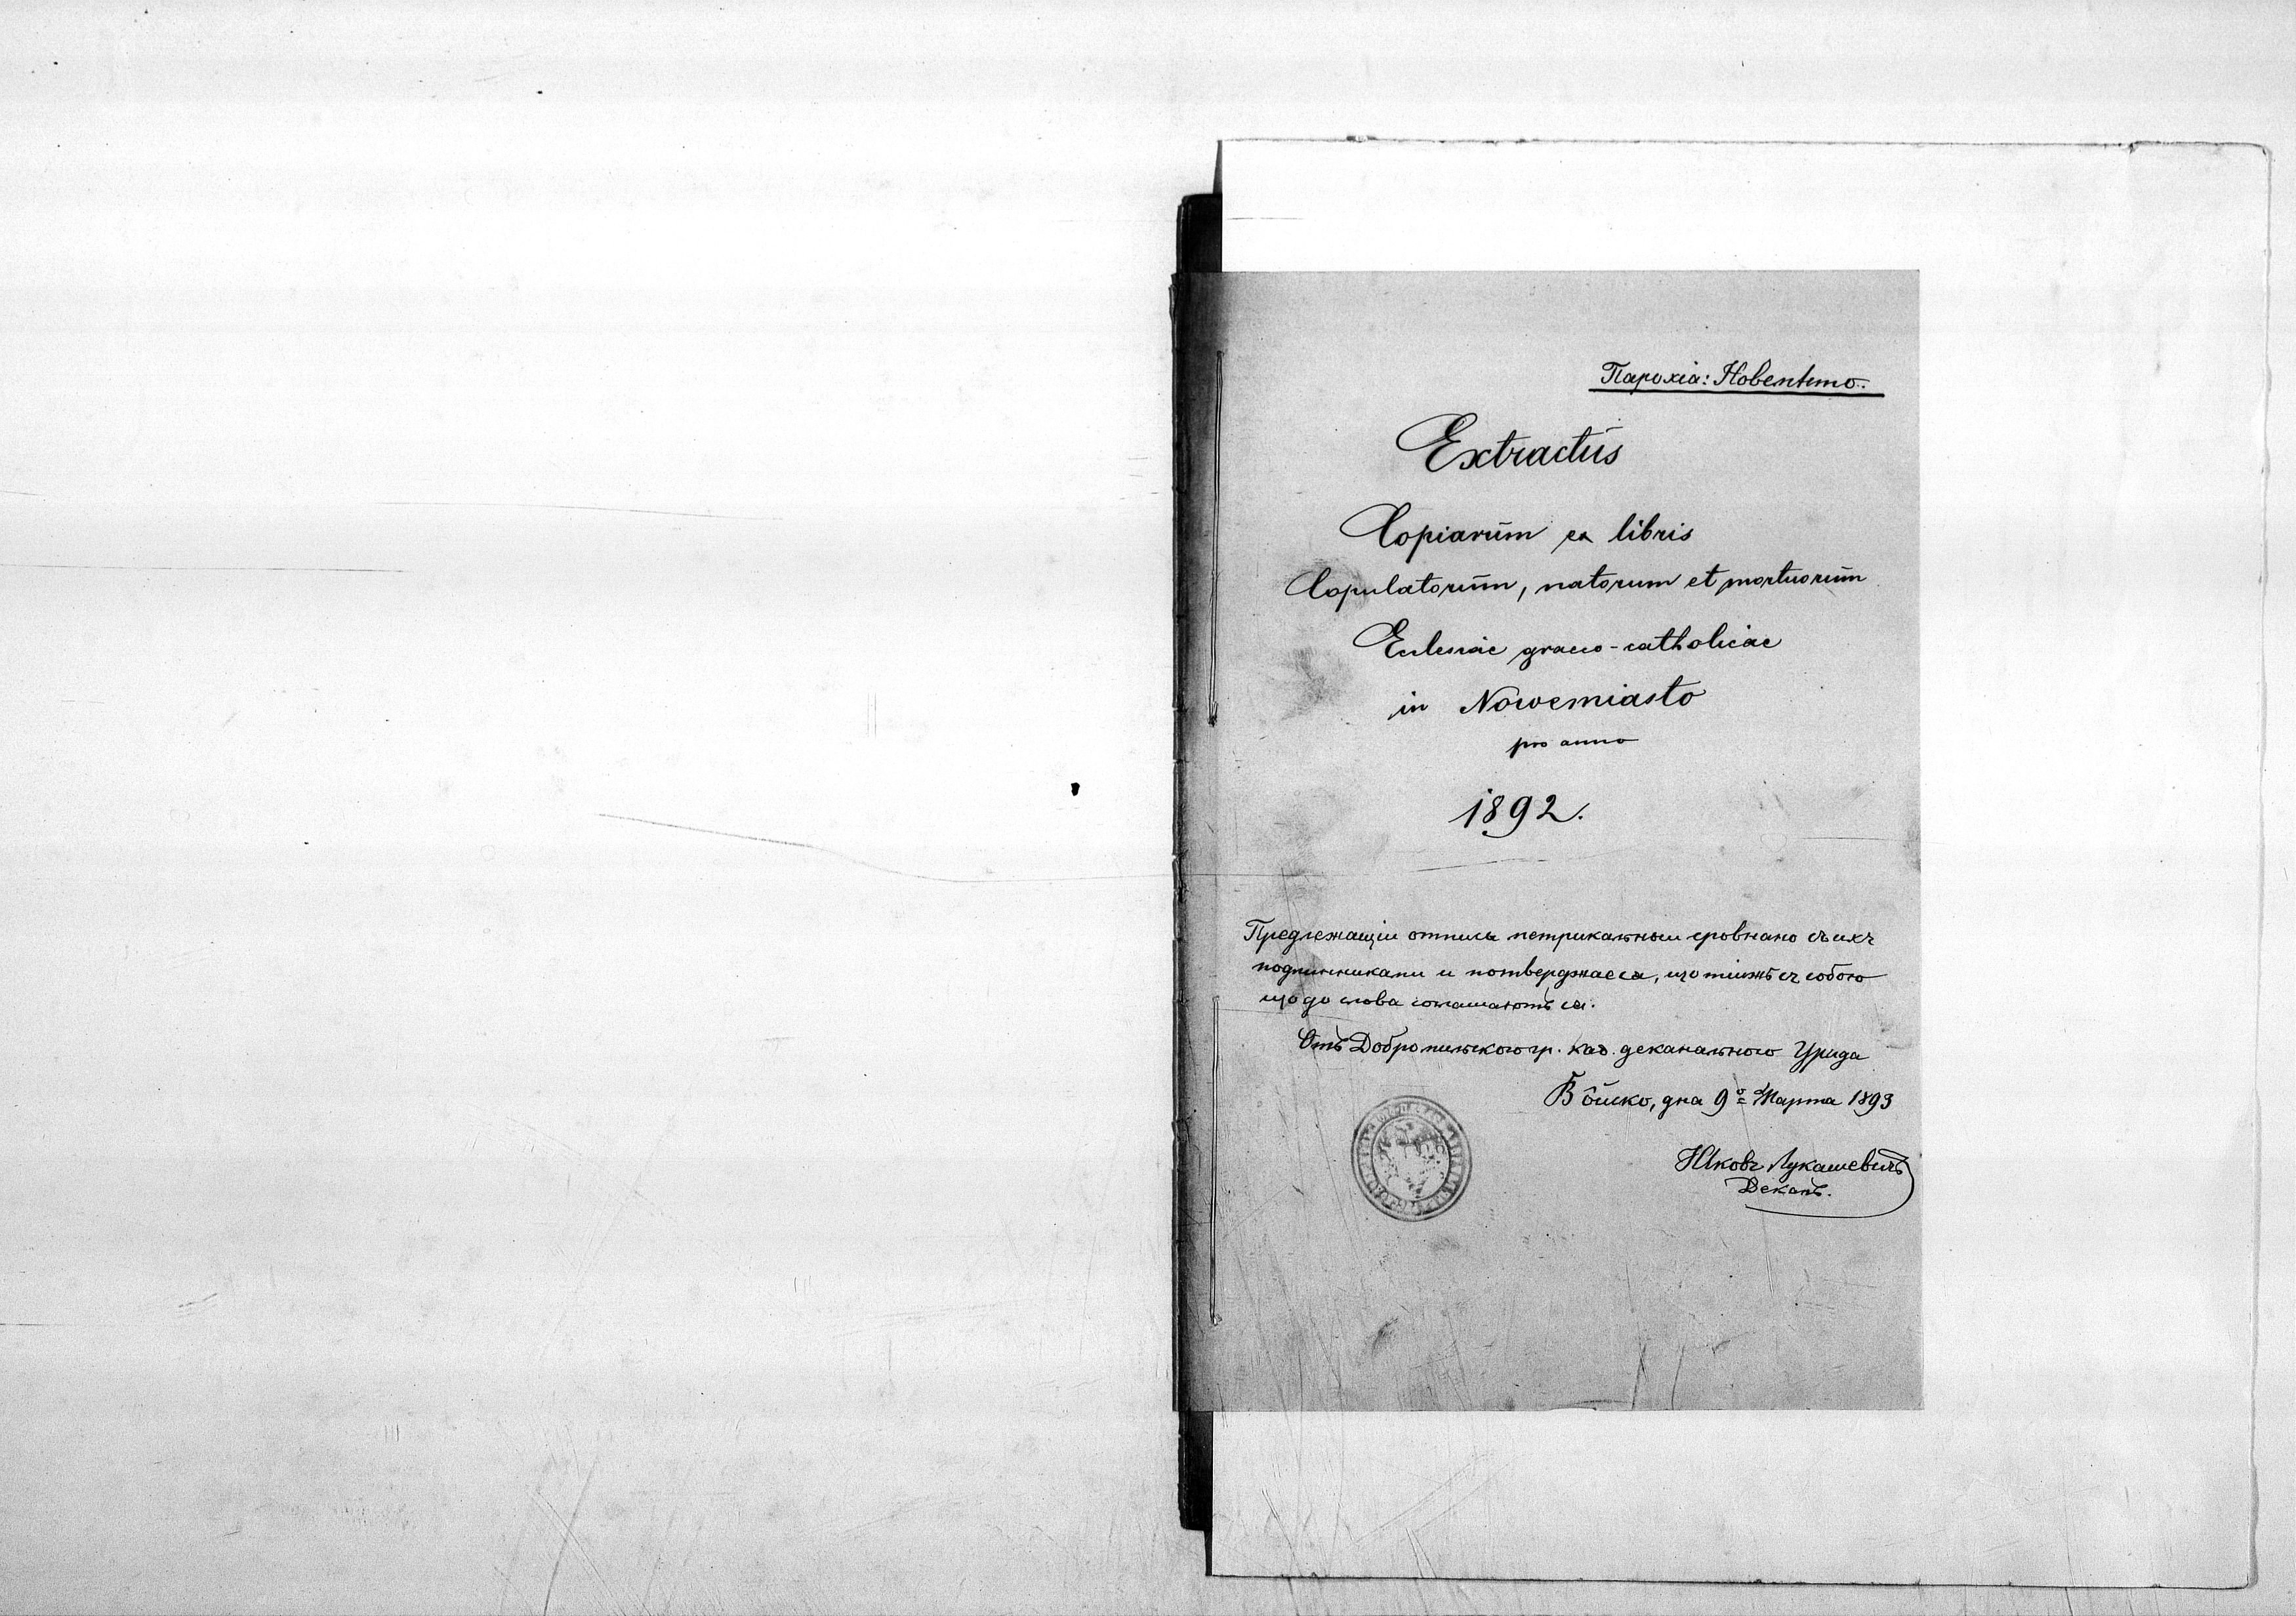 Парохіа: Новемѣсто.
Extractus
Copiarum ex libris
Copulatorum, natorum et mortuorum
Eclesiae graeco-catholicae
in Nowemiasto
pro anno
1892.
Предлежащіи отписы метрикальныи сровнано съ ихъ
подлинниками и потверджаеся, що тіижъ съ собою
що до слова соглашаютъ ся.
Отъ Добромильского гр. каѳ. деканального Уряда
Войско, дня 9º Марта 1893
Яковъ Лукашевичъ
Деканъ.